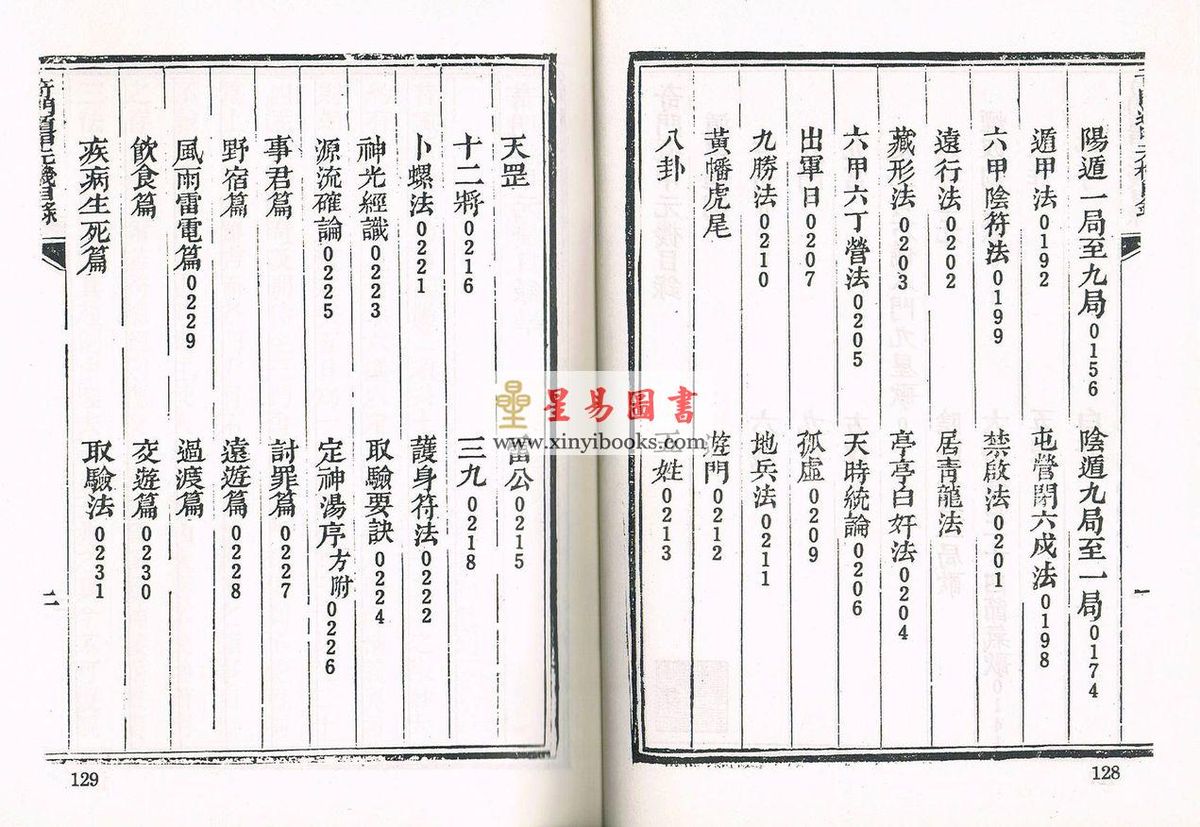 陽遁一局至九局0156 陰遁九局至一局0174
遁甲法0192 屯營閉六戍法0198
六甲陰符法0199 禁啟法0201
遠行法0202 居青龍法
藏形法0203 亭亭白奸法0204
六甲六丁營法0205 天時統論0206
出軍日0207 孤虛0209
九勝法0210 地兵法0211
黃幡虎尾 遊門0212
八卦 五姓0213
一
128
天罡 雷公0215
十二將0216 三九0218
卜螺法0221 護身符法0222
神光經識0223 取驗要訣0224
源流確論0225 定神湯序方附0226
事君篇 討罪篇0227
野宿篇 遠遊篇0228
風雨雷電篇0229 過渡篇
飲食篇 交遊篇0230
疾病生死篇 取驗法0231
奇門遁甲元機目錄
二
129
星易圖書
www.xinyibooks.com